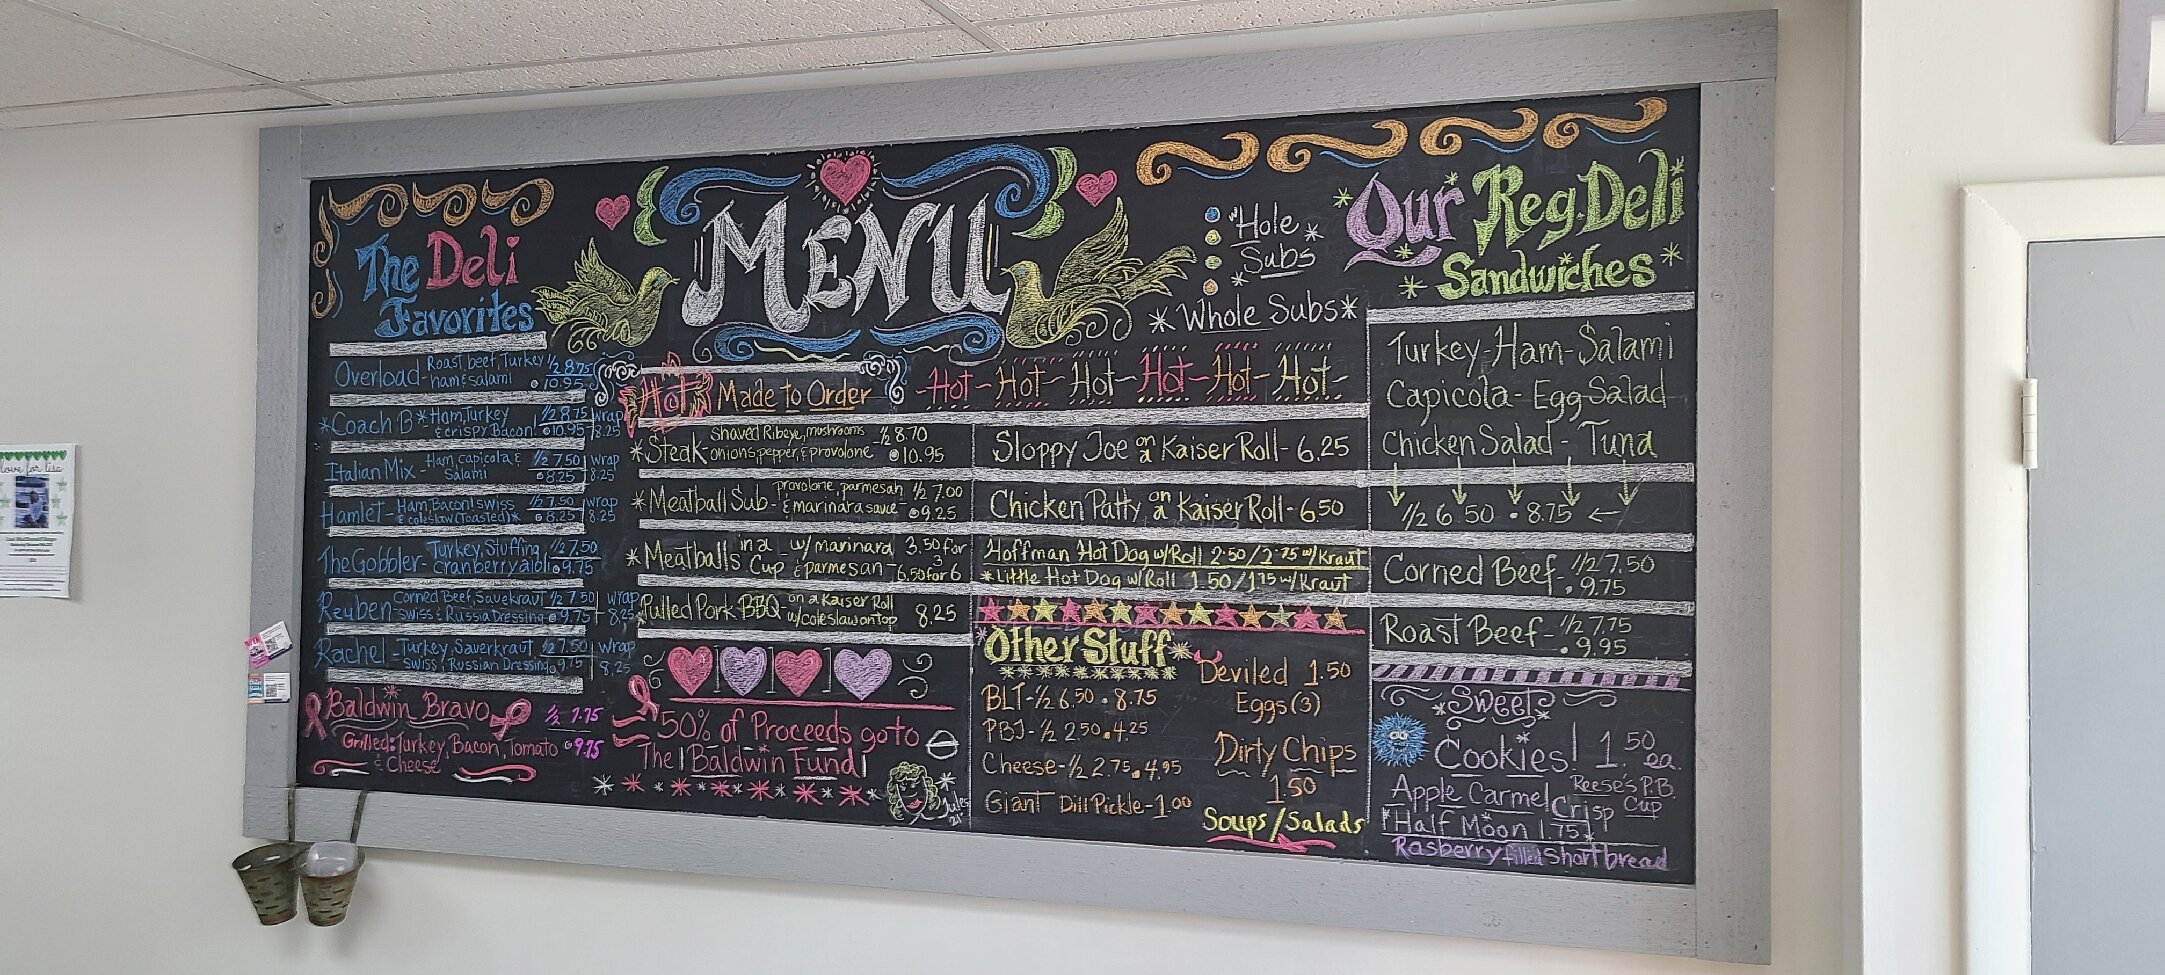 The Deli
Favorites
Overload - Roast beef, Turkey ½ 8.75
ham & salami • 10.95
*Coach B* Ham, Turkey ½ 8.75 wrap
& crispy Bacon! • 10.95 8.25
Italian Mix - Ham, capicola & ½ 7.50 wrap
Salami • 8.25 8.25
Hamlet - Ham, Bacon! swiss ½ 7.50 wrap
& coleslaw (Toasted)* • 8.25 8.25
The Gobbler - Turkey, Stuffing ½ 7.50
cranberry aioli • 9.75
Reuben - Corned Beef, Saurkraut ½ 7.50 wrap
swiss & Russia Dressing • 9.75 8.25
Rachel - Turkey, Saverkraut ½ 7.50 wrap
swiss & Russian Dressing • 9.75 8.25
Baldwin Bravo ½ 7.75
Grilled: Turkey, Bacon, Tomato • 9.75
& Cheese
MENU
Hot Made to Order
-Hot-Hot-Hot-Hot-Hot-Hot-
*Steak - Shaved Ribeye, mushrooms ½ 8.70
onions, pepper, & provolone • 10.95
*Meatball Sub - provolone, parmesan ½ 7.00
& marinara sauce - • 9.25
*Meatballs in a Cup - w/ marinara 3.50 for 3
& parmesan - 6.50 for 6
*Pulled Pork BBQ on a Kaiser Roll 8.25
w/ coleslaw on top
50% of Proceeds go to
The Baldwin Fund
Jules
21'
"Hole
Subs*
*Whole Subs*
Sloppy Joe on a Kaiser Roll - 6.25
Chicken Patty on a Kaiser Roll - 6.50
Hoffman Hot Dog w/Roll 2.50/2.75 w/Kraut
*Little Hot Dog w/Roll 1.50/1.75 w/Kraut
*Other Stuff*
BLT - ½ 6.50 • 8.75
PBJ - ½ 2.50 • 4.25
Cheese - ½ 2.75 • 4.95
Giant Dill Pickle - 1.00
Deviled 1.50
Eggs (3)
Dirty Chips
1.50
Soups/Salads
Our Reg. Deli
*Sandwiches*
Turkey - Ham - Salami
Capicola - Egg Salad
Chicken Salad - Tuna
½ 6.50 • 8.75
Corned Beef - ½ 7.50
• 9.75
Roast Beef - ½ 7.75
• 9.95
*Sweet*
Cookies! 1.50 ea.
Reese's P.B. Cup
Apple Carmel Crisp
Half Moon 1.75
Rasberry filled Shortbread